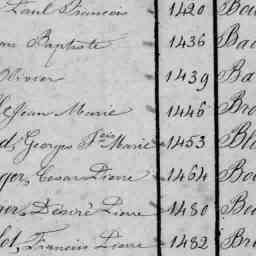 Paul Francois 1420 Bou
Baptiste 1436 Bac
Olivier 1439 Ba
Jean Marie 1446 Bro
Georges Fois Marie 1453 Blo
ger, Cesar Pierre 1464 Bou
ger, Désiré Pierre 1480 Bou
lot, Francois Pierre 1482 Bri